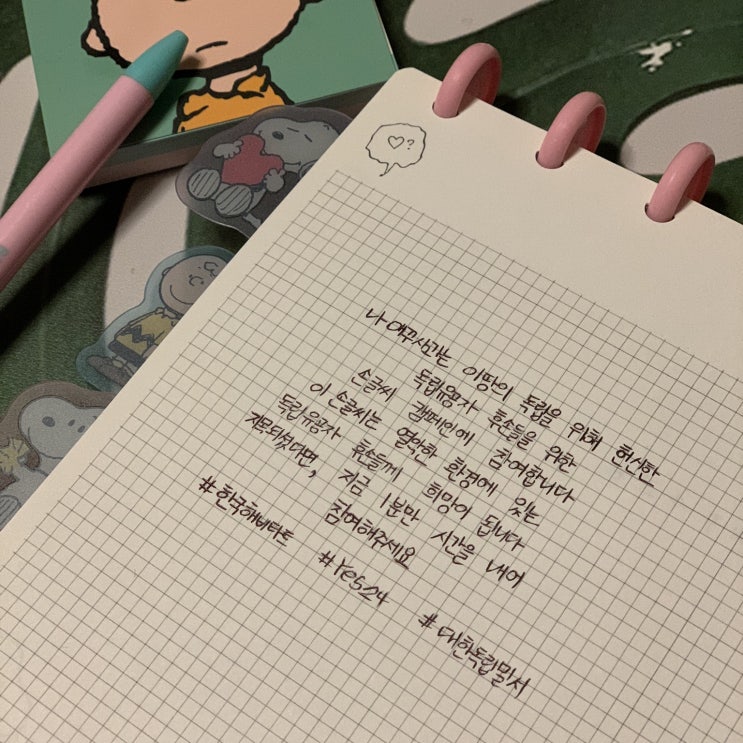 ♡?
나 애꾸사과는 이땅의 독립을 위해 헌신한
독립유공자 후손들을 위한
손글씨 캠페인에 참여합니다
이 손글씨는 열악한 환경에 있는
독립유공자 후손들께 희망이 됩니다
지목되셨다면, 지금 1분만 시간을 내어
참여해주세요
#한국해비타트 #Yes24 #대한독립밀서